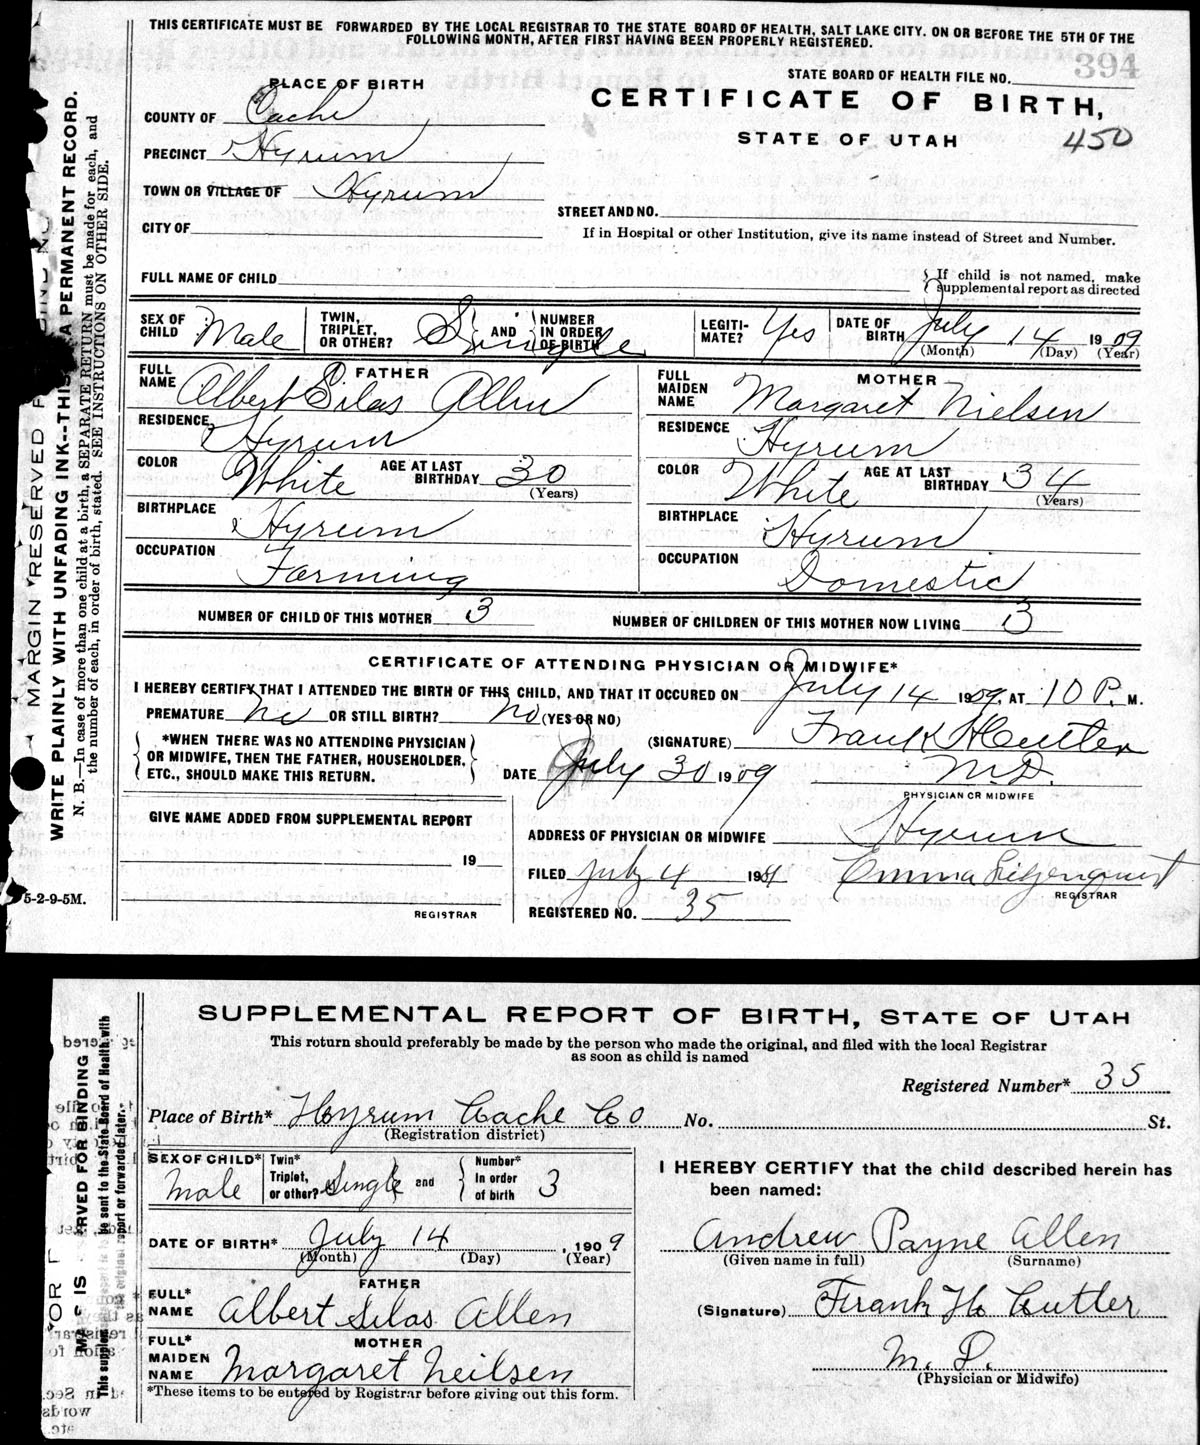 THIS CERTIFICATE MUST BE FORWARDED BY THE LOCAL REGISTRAR TO THE STATE BOARD OF HEALTH, SALT LAKE CITY. ON OR BEFORE THE 5TH OF THE
FOLLOWING MONTH, AFTER FIRST HAVING BEEN PROPERLY REGISTERED.
STATE BOARD OF HEALTH FILE NO. 394
PLACE OF BIRTH
CERTIFICATE OF BIRTH,
STATE OF UTAH 450
COUNTY OF Cache
PRECINCT Hyrum
TOWN OR VILLAGE OF Hyrum
CITY OF
STREET AND NO.
If in Hospital or other Institution, give its name instead of Street and Number.
FULL NAME OF CHILD
If child is not named, make
supplemental report as directed
SEX OF CHILD Male
TWIN, TRIPLET, OR OTHER? Single AND NUMBER IN ORDER OF BIRTH
LEGITIMATE? Yes
DATE OF BIRTH July 14 1909
(Month) (Day) (Year)
FATHER
FULL NAME Albert Silas Allen
RESIDENCE Hyrum
COLOR White AGE AT LAST BIRTHDAY 30
(Years)
BIRTHPLACE Hyrum
OCCUPATION Farming
MOTHER
FULL MAIDEN NAME Margaret Nielsen
RESIDENCE Hyrum
COLOR White AGE AT LAST BIRTHDAY 34
(Years)
BIRTHPLACE Hyrum
OCCUPATION Domestic
NUMBER OF CHILD OF THIS MOTHER 3 NUMBER OF CHILDREN OF THIS MOTHER NOW LIVING 3
CERTIFICATE OF ATTENDING PHYSICIAN OR MIDWIFE*
I HEREBY CERTIFY THAT I ATTENDED THE BIRTH OF THIS CHILD, AND THAT IT OCCURED ON July 14 1909, AT 10 P. M.
PREMATURE No OR STILL BIRTH? No (YES OR NO)
*WHEN THERE WAS NO ATTENDING PHYSICIAN
OR MIDWIFE, THEN THE FATHER, HOUSEHOLDER,
ETC., SHOULD MAKE THIS RETURN.
(SIGNATURE) Frank H Cutler
DATE July 30 1909 M.D.
PHYSICIAN OR MIDWIFE
GIVE NAME ADDED FROM SUPPLEMENTAL REPORT
19
REGISTRAR
ADDRESS OF PHYSICIAN OR MIDWIFE Hyrum
FILED July 4 190 Emma Liljenquist
REGISTRAR
REGISTERED NO. 35
5-2-9-5M.
MARGIN RESERVED
WRITE PLAINLY WITH UNFADING INK--THIS A PERMANENT RECORD.
N. B.—In case of more than one child at a birth, a SEPARATE RETURN must be made for each, and
the number of each, in order of birth, stated. SEE INSTRUCTIONS ON OTHER SIDE.
SUPPLEMENTAL REPORT OF BIRTH, STATE OF UTAH
This return should preferably be made by the person who made the original, and filed with the local Registrar
as soon as child is named
Registered Number* 35
Place of Birth* Hyrum Cache Co No. St.
(Registration district)
SEX OF CHILD* Male
Twin* Triplet, or other? Single and Number* In order of birth 3
DATE OF BIRTH* July 14, 1909
(Month) (Day) (Year)
FATHER
FULL* NAME Albert Silas Allen
MOTHER
FULL* MAIDEN NAME Margaret Neilsen
*These items to be entered by Registrar before giving out this form.
I HEREBY CERTIFY that the child described herein has
been named:
Andrew Payne Allen
(Given name in full) (Surname)
(Signature) Frank H. Cutler
M. D.
(Physician or Midwife)
RVED FOR BINDING
be sent to the State Board of Health with
report or forwarded later.